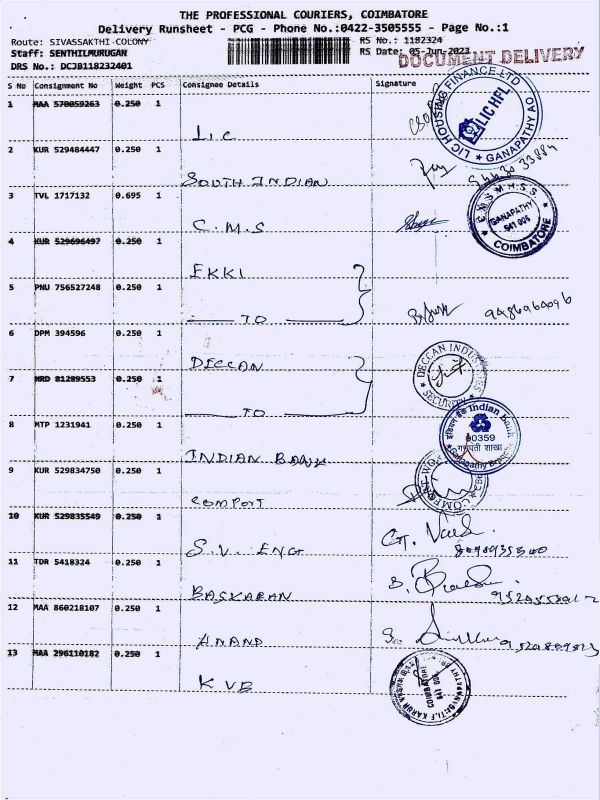 THE PROFESSIONAL COURIERS, COIMBATORE
Delivery Runsheet - PCG - Phone No.:0422-3505555 - Page No.:1
Route: SIVASSAKTHI-COLONY RS No.: 1182324
Staff: SENTHILMURUGAN RS Date: 05-Jun-2023
DOCUMENT DELIVERY
DRS No.: DCJB118232401
S No Consignment No Weight PCS Consignee Details Signature
1 MAA 570059263 0.250 1
LIC
LIC HOUSING FINANCE LTD.
LIC HFL
GANAPATHY AO
2 KUR 529484447 0.250 1
SOUTH INDIAN
94430 33884
3 TVL 1717132 0.695 1
C.M.S
C.M.S M.H.S.S
GANAPATHY
641 006
COIMBATORE
4 KUR 529696497 0.250 1
EKKI
5 PNU 756527248 0.250 1
TO
9486960096
6 DPM 394596 0.250 1
DECCAN
DECCAN INDUSTRIES
SECURITY
7 MRD 81289553 0.250 1
TO
8 MTP 1231941 0.250 1
INDIAN BANK
इंडियन बैंक Indian Bank
00359
गणपती शाखा
Ganapathy Branch
9 KUR 529834750 0.250 1
COMFORT
10 KUR 529835549 0.250 1
S.V. ENG
11 TDR 5418324 0.250 1
BASKARAN
12 MAA 860218107 0.250 1
ANAND
13 MAA 296110182 0.250 1
KVB
COIMBATORE